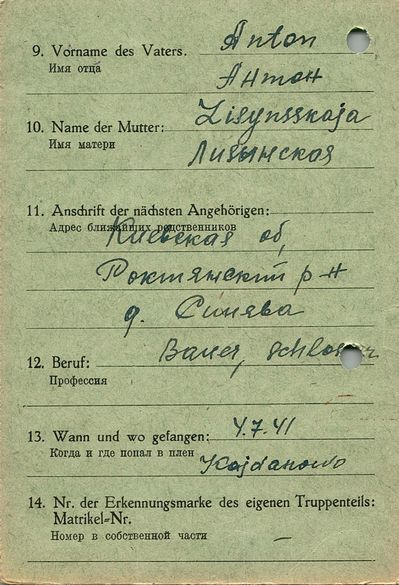 9. Vorname des Vaters. Anton
Имя отца
Антон
10. Name der Mutter: Lisynsskaja
Имя матери
Лизынская
11. Anschrift der nächsten Angehörigen:
Адрес ближайших родственников
Киевская об,
Рокитянский р-н
д. Синява
12. Beruf: Bauer, Schlosser
Профессия
13. Wann und wo gefangen: 4.7.41
Когда и где попал в плен
Kajdanowo
14. Nr. der Erkennungsmarke des eigenen Truppenteils:
Matrikel-Nr.
Номер в собственной части –